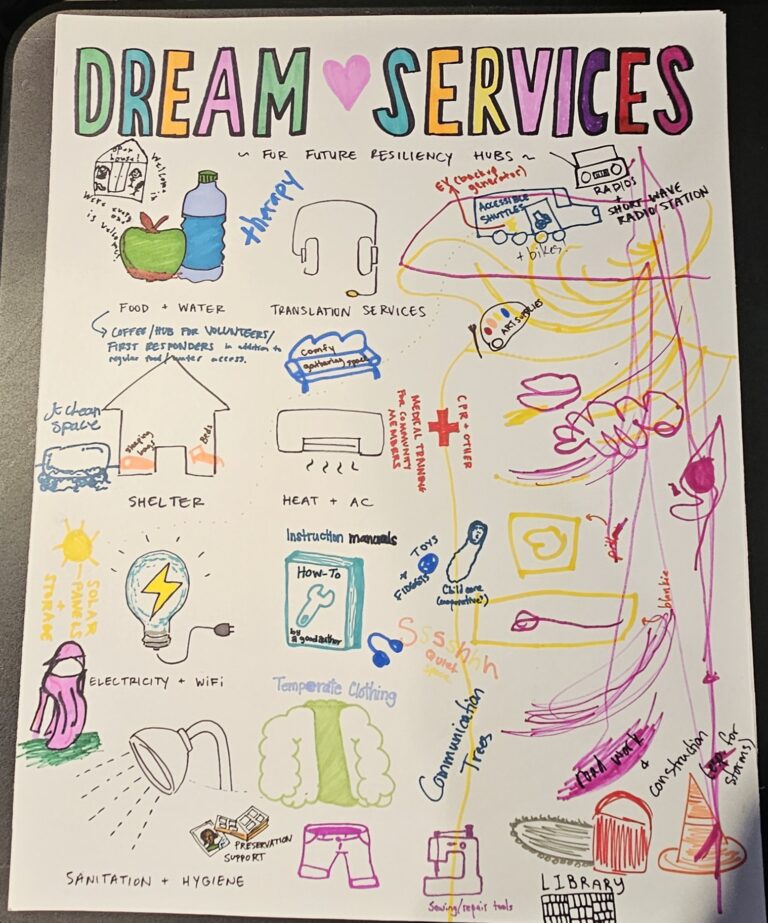 DREAM SERVICES
~ FOR FUTURE RESILIENCY HUBS ~
open house!
Welcome
is welcome
therapy
EV (backup generator)
ACCESSIBLE SHUTTLES
+ bikes
RADIOS
+
SHORT WAVE
RADIO STATION
FOOD + WATER
TRANSLATION SERVICES
ART SUPPLIES
COFFEE/HUB FOR VOLUNTEERS/
FIRST RESPONDERS in addition to
regular food/water access.
comfy
gathering space
clean
space
sleeping bags
Beds
SHELTER
HEAT + AC
MEDICAL TRAINING
FOR COMMUNITY
MEMBERS
CPR + OTHER
SOLAR
PANELS
+
STORAGE
ELECTRICITY + WiFi
Instruction manuals
HOW-TO
by
a good author
TOYS
+
FIDGETS
Child care
(cooperative!)
Sssshhh
Quiet
space
blankie
Temperate Clothing
Communication
Trees
road work
&
construction
for
storms)
PRESERVATION
SUPPORT
SANITATION + HYGIENE
Sewing/repair tools
LIBRARY